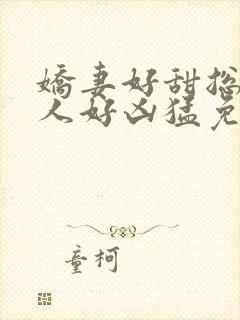 嬌妻好甜挖
人好凶猛免
童柯